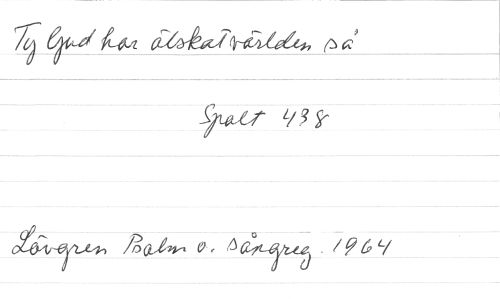 Ty Gud har älskat världen så
Spalt 438
Lövgren Psalm o. sångreg. 1964